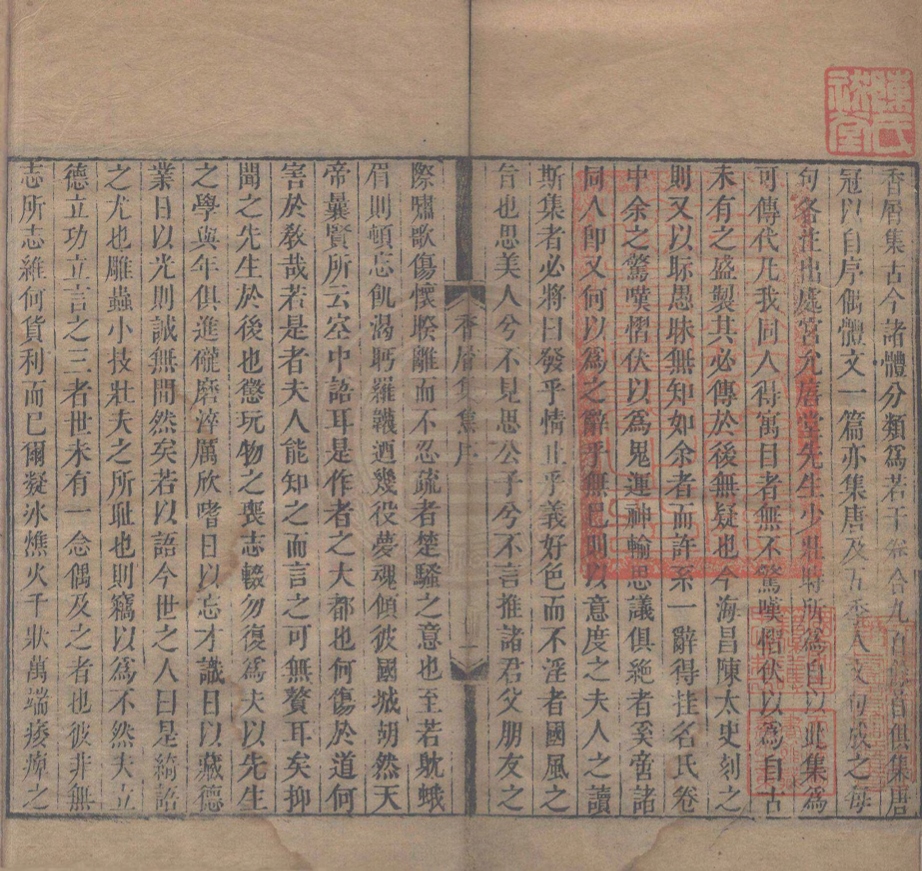 香屑集古今諸體分類爲若干卷合九百餘首俱集唐
冠以自序偶體文一篇亦集唐及五季人文句成之每
句各注出處宮允唐堂先生少壯時所爲自以此集爲
可傳代凡我同人得寓目者無不驚嘆慴伏以爲自古
未有之盛製其必傳於後無疑也今海昌陳太史刻之
則又以眎愚眛無知如余者而許系一辭得挂名氏卷
中余之驚嘆慴伏以爲鬼運神輸思議俱絕者奚啻諸
同人卽又何以爲之辭乎無已則以意度之夫人之讀
斯集者必將曰發乎情止乎義好色而不淫者國風之
旨也思美人兮不見思公子兮不言推諸君父朋友之
香屑集集序
一
際嘯歌傷懷睽離而不忍疏者楚騷之意也至若眈蛾
眉則頓忘飢渴眄羅韈迺幾役夢魂傾彼國城胡然天
帝曩賢所云空中語耳是作者之大都也何傷於道何
害於敎哉若是者夫人能知之而言之可無贅耳矣抑
聞之先生於後也懲玩物之喪志輟勿復爲夫以先生
之學與年俱進礲磨淬厲欣嗜日以忘才識日以藏德
業日以光則誠無間然矣若以語今世之人曰是綺語
之尤也雕蟲小技壯夫之所耻也則竊以爲不然夫立
德立功立言之三者世未有一念偶及之者也彼非無
志所志維何貨利而已爾凝冰燋火千狀萬端痿痺之
陳氏